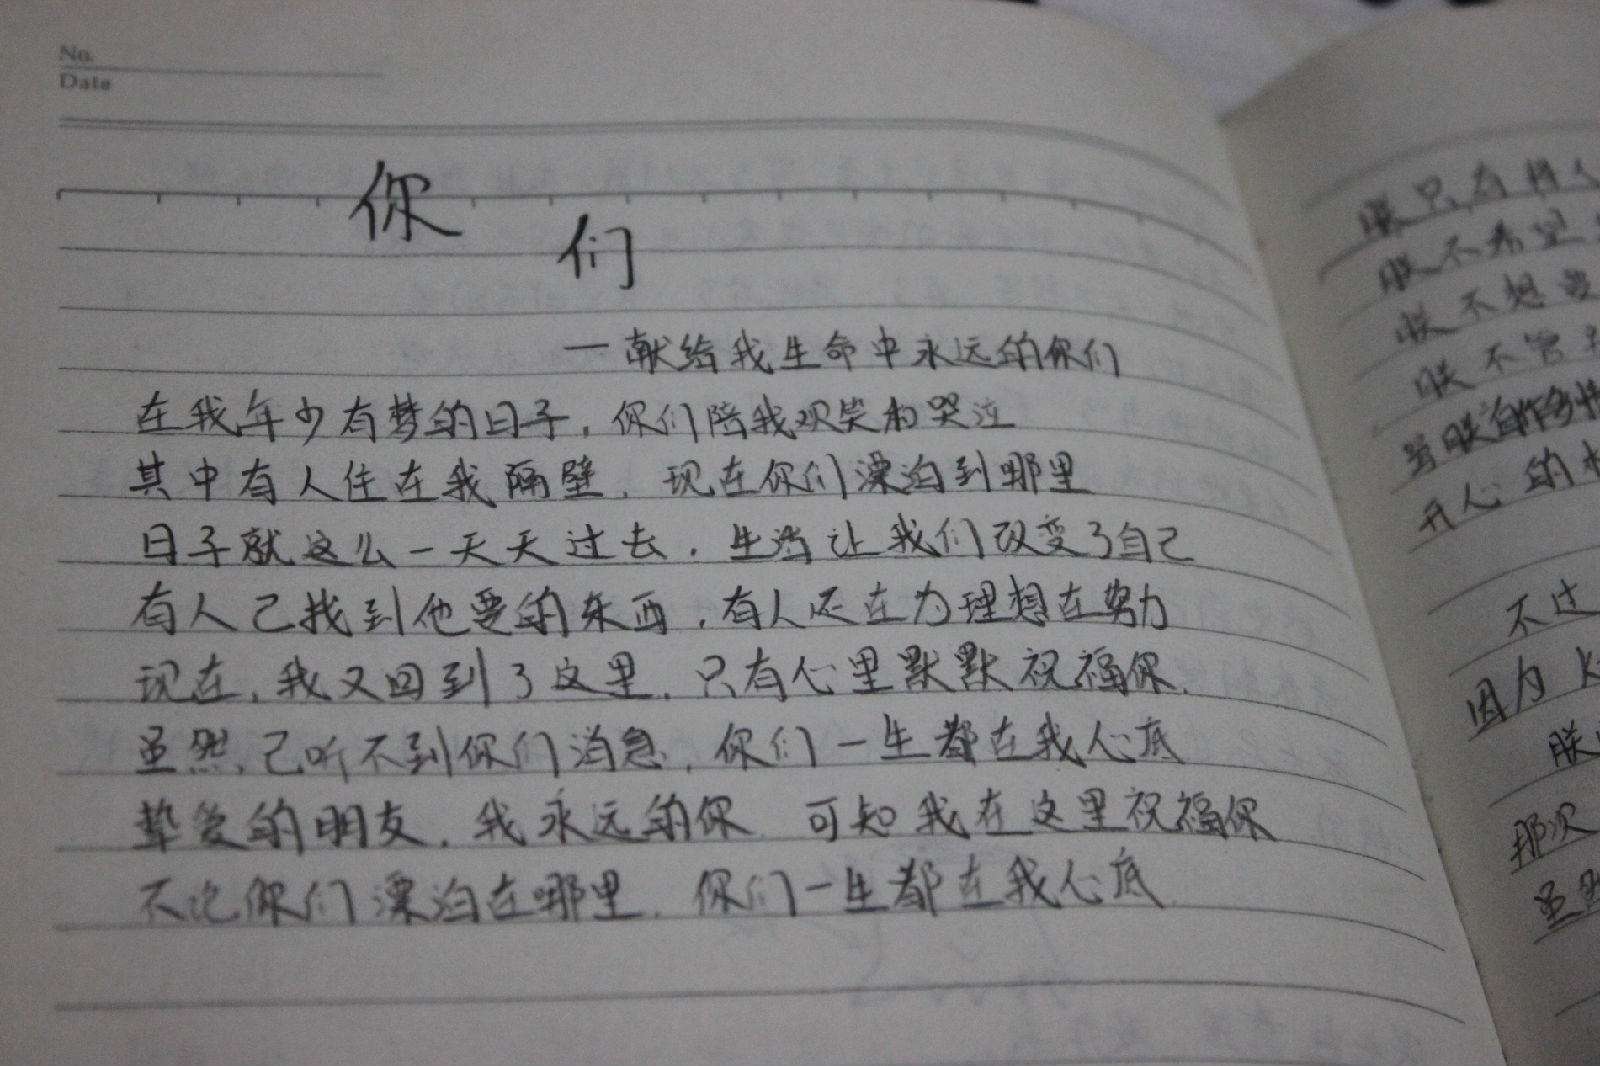 No.
Date
你
们
—献给我生命中永远的你们
在我年少有梦的日子，你们陪我欢笑和哭泣
其中有人住在我隔壁，现在你们漂泊到哪里
日子就这么一天天过去，生活让我们改变了自己
有人已找到他要的东西，有人还在为理想在努力
现在，我又回到了这里，只有心里默默祝福你，
虽然，已听不到你们消息，你们一生都在我心底
挚爱的朋友，我永远的你 可知我在这里祝福你
不论你们漂泊在哪里，你们一生都在我心底
朕只有
朕不希望
朕不想要
朕不管
当朕自作多情
开心的
不过
因为
朕
那次
虽然